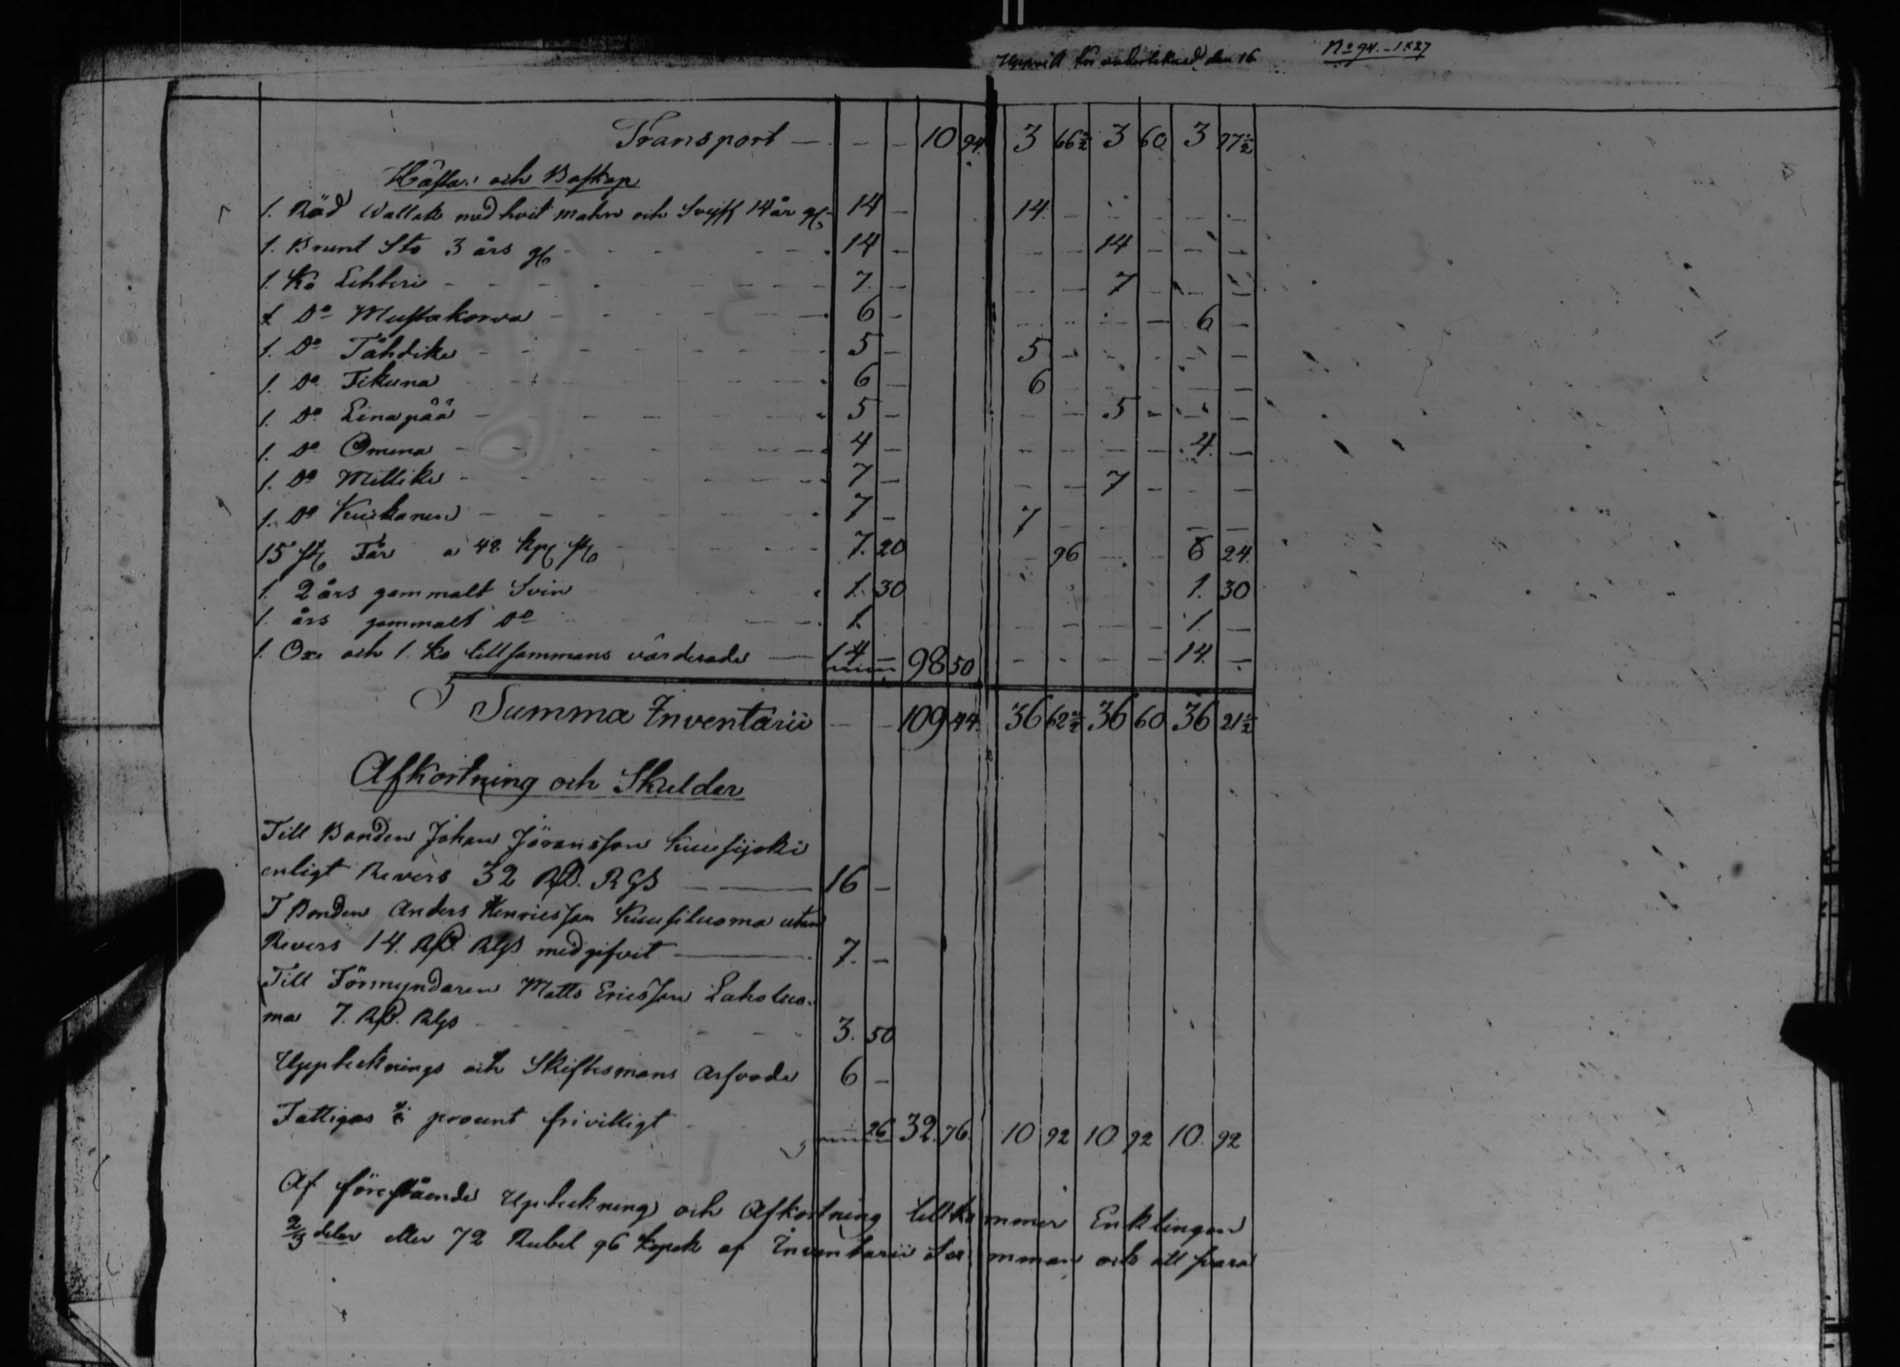 Uppvist för undertecknad den 16 No 94. - 1827
Transport — — — 10 94. 3 66½ 3 60 3 27½
Hästar och Boskap
1. Röd Wallak med hvit mahn och Svyf 14 år gl 14 — 14. — — — — —
1. Brunt Sto 3 års gl 14 — — — 14 — — —
1. Ko Lehteri 7. — — — 7 — — —
1 Do Mustakorva 6 — — — — — 6 —
1. Do Tähdike 5 — 5 — — — — —
1. Do Tikuna 6 — 6 — — — — —
1. Do Linapää 5 — — — 5 — — —
1. Do Omena 4 — — — — — 4. —
1. Do Mellike 7 — — — 7 — — —
1. Do Kuukanen 7 — 7 — — — — —
15 st Får a 48 kpk st 7. 20 — 96 — — 6 24.
1. 2 års gammalt Svin 1. 30 — — — — 1. 30
1. års gammalt Do 1. — — — — 1. —
1. Oxe och 1. Ko tillsammans värderade — 14 — 98 50 — — — — 14. —
Summa Inventarii — — 109 44. 36 62½ 36 60 36 21½
Afkortning och Skulder
Till Bonden Johan Jöransson Kuusijoki
enligt Revers 32 RD. RGS — 16 —
T Bonden Anders Henricsson Kuusiluoma utan
Revers 14. RD. RGS medgifvit — 7. —
Till Förmyndaren Matts Ericsson Lakoluo-
ma 7. RD. RGS 3. 50
Uppteknings och Skiftesmans arfvode 6 —
Fattigas procent frivilligt 26 32. 76. 10 92 10 92 10. 92
Af förestående Uptekning och Afkortning tillkommer Enklingen
⅔ delar eller 72 Rubel 96 kopek af Inventarii Summan och att svara